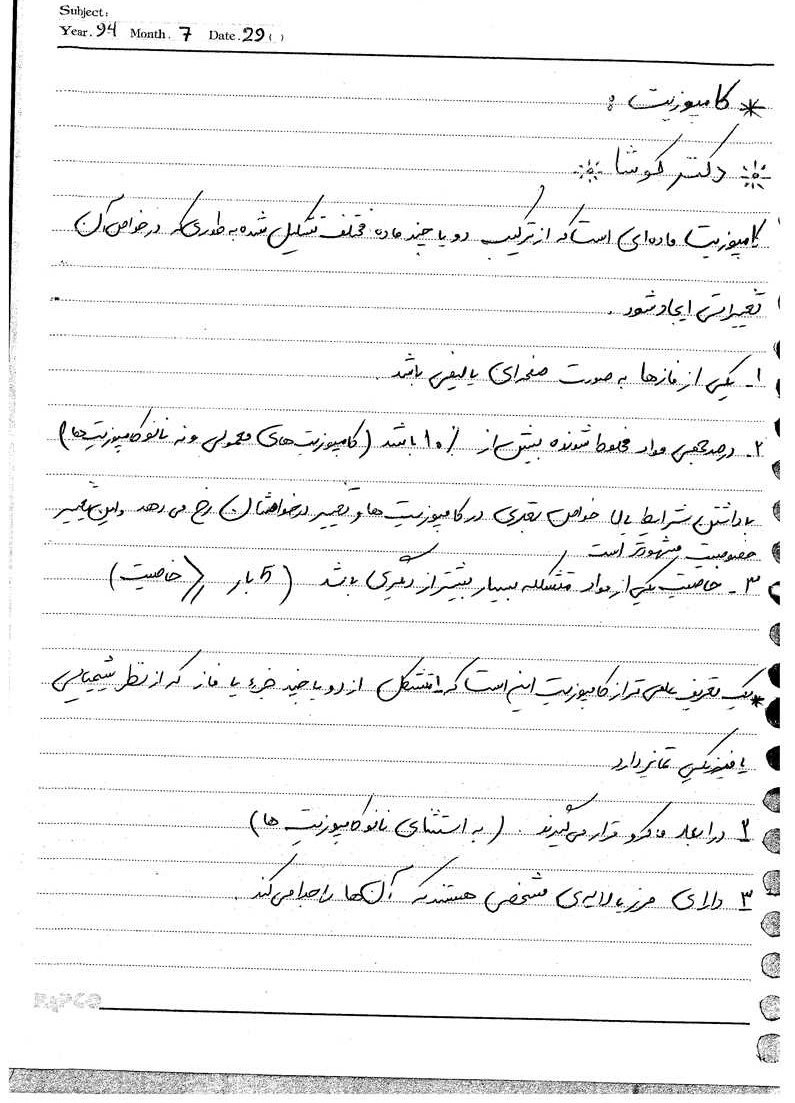 Subject:
Year. 94 Month. 7 Date. 29 ( )
* کامپوزیت :
دکتر کوشا
کامپوزیت ماده‌ای است که از ترکیب دو یا چند ماده مختلف تشکیل شده به طوری که در خواص آن
تغییراتی ایجاد شود .
۱ـ یکی از فازها به صورت صفحه‌ای یا لیفی باشد .
۲ـ درصد حجمی مواد مخلوط شونده بیش از ۱۰٪ باشد (کامپوزیت‌های معمولی و نه نانو کامپوزیت‌ها)
با داشتن شرایط بالا خواص بعدی در کامپوزیت ها و تغییر در خواصشان رخ می دهد و این تغییر
خصوصیت مشهودتر است
۳ـ خاصیت یکی از مواد متشکله بسیار بیشتر از دیگری باشد (5 بار خاصیت)
* یک تعریف علمی تر از کامپوزیت این است که ۱ـ متشکل از دو یا چند جزء یا فاز که از نظر شیمیایی
یا فیزیکی تمایز دارد
۲ در ابعاد ماکرو قرار می‌گیرند . (به استثنای نانو کامپوزیت ها)
۳ دارای مرز یا لایه‌ی مشخصی هستند که آن‌ها را جدا می‌کند .
PAPCO